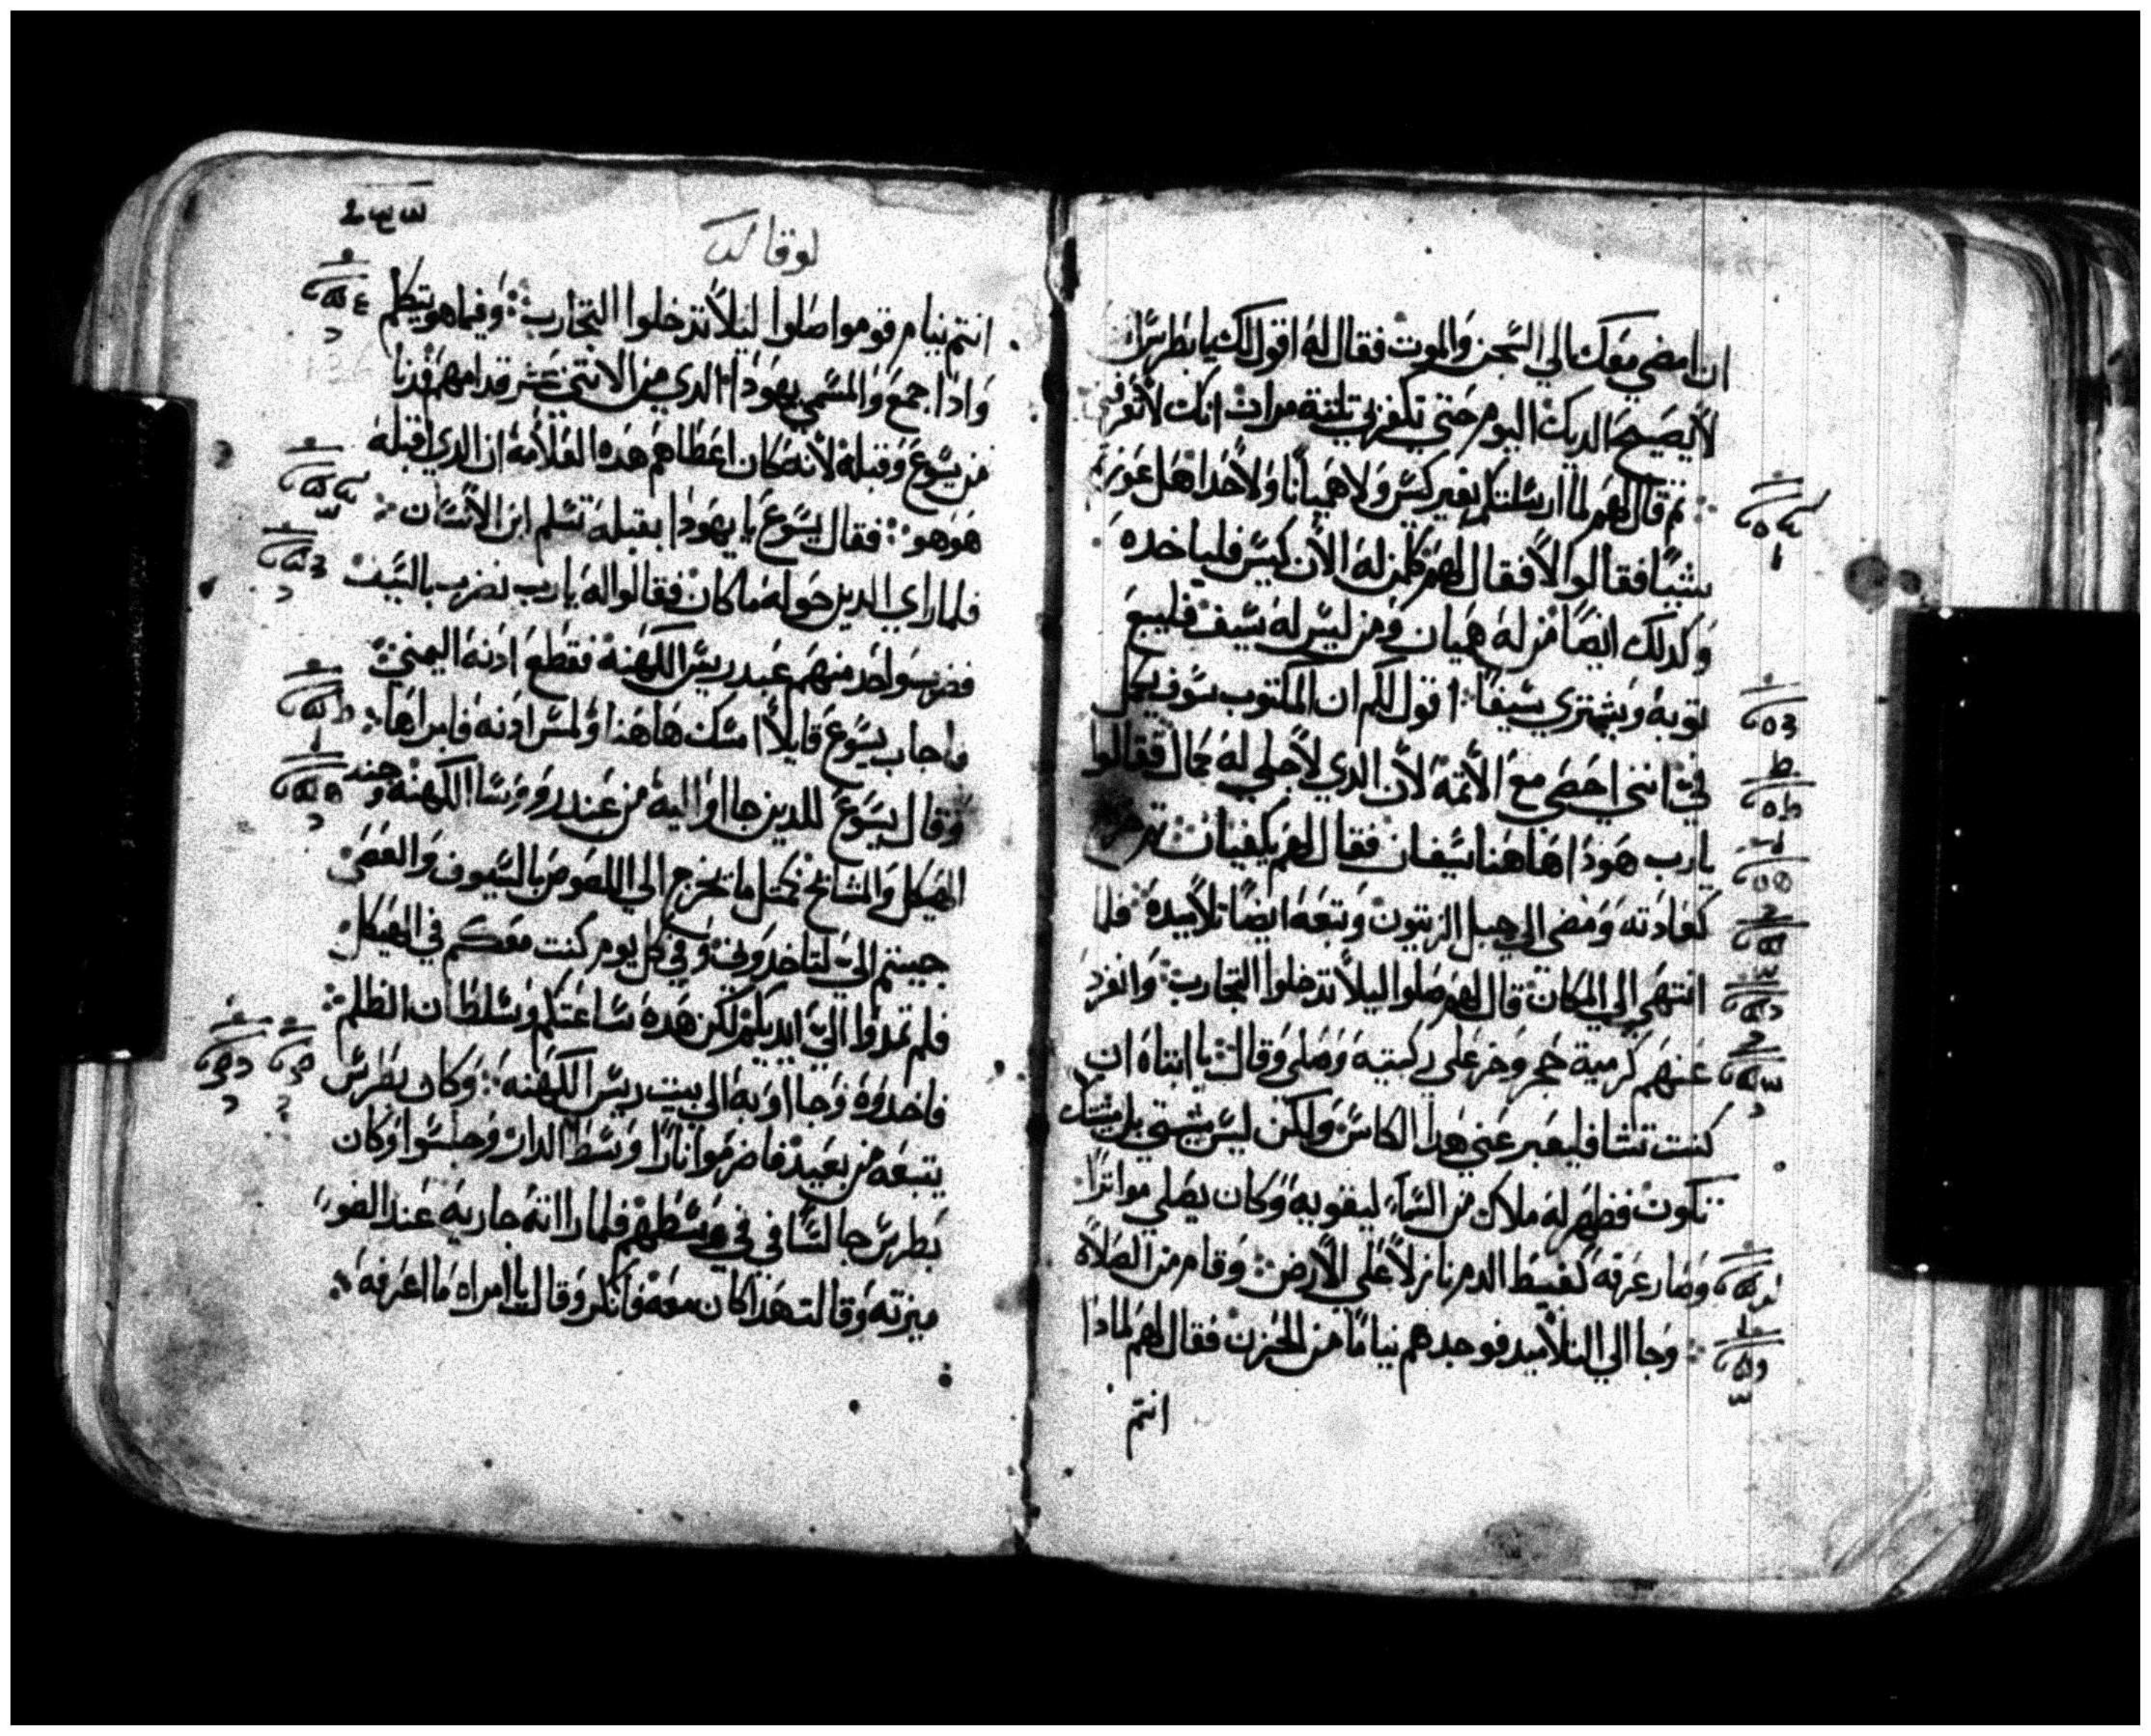 ان امضي معك الي السجن والموت فقال له اقول لك يا بطرس ان
لا يصيح الديك اليوم حتي تكفر بي تلتة مرات انك لا تعرفني
ثم قال لهم لما ارسلتكم بغير كيس ولا هميانا ولا حدا هل عوزتم
شيا فقالوا لا فقال لهم كلمن له الان كيس فلياخده
وكدلك ايضا من له هميان ومن ليس له سيف فليبع
توبه ويشتري سيفا اقول لكم ان المكتوب سوف يكمل
في انني احصي مع الاتمة لان الدي لاجلي له كمال فقالوا
يا رب هودا هاهنا سيفان فقال لهم يكفيان تم خرج
كعادته ومضي الي جبل الزيتون وتبعه ايضا تلاميده فلما
انتهي الي المكان قال لهم صلوا ليلا تدخلوا التجارب وانفرد
عنهم كرمية حجر وخر علي ركبتيه وصلي وقال يا ابتاه ان
كنت تشا فليعبر عني هدا الكاس ولكن ليس مشيتي بل مشيتك
تكون فظهر له ملاك من السماء ليقويه وكان يصلي متواترا
وصار عرقه كعبيط الدم نازلا علي الارض وقام من الصلاة
وجا الي التلاميد فوجدهم نياما من الحزن فقال لهم لمادا
انتم
لوقا
انتم نيام قوموا صلوا ليلا تدخلوا التجارب وفيما هو يتكلم
وادا جمع والمسمي يهودا الدي من الاتني عشر قدامهم فدنا
من يسوع وقبله لانه كان اعطاهم هده العلامة ان الدي اقبله
هو هو فقال يسوع يا يهودا بقبله تسلم ابن الانسان
فلما راي الدين حوله ما كان فقالوا له يا رب نضرب بالسيف
فضرب واحد منهم عبد ريس الكهنة فقطع ادنه اليمني
فاجاب يسوع قايلا امسك هاهنا ولمس ادنه فابراها
وقال يسوع للدين جااوا اليه من عند رووسا الكهنة وجند
الهيكل والمشايخ كمتل ما تخرج الي اللصوص بالسيوف والعصي
جيتم الي لتاخدوني وفي كل يوم كنت معكم في الهيكل
فلم تمدوا الي ايديكم لكن هده ساعتكم وسلطان الظلم
فاخدوه وجااو به الي بيت ريس الكهنه وكان بطرس
يتبعه من بعيد فاضرموا نارا وسط الدار وجلسوا وكان
بطرس جالسا في وسطهم فلما راته جاريه عند الضو
ميزته وقالت هدا كان معه فانكر وقال يا امراه ما اعرفه